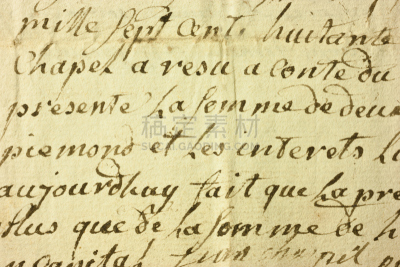 mille sept cent huitante
Chapel a resu a conte du
presente La somme de deux
piemond et Les interets La
aujourdhuy fait que La pre
plus que de La somme de
capital